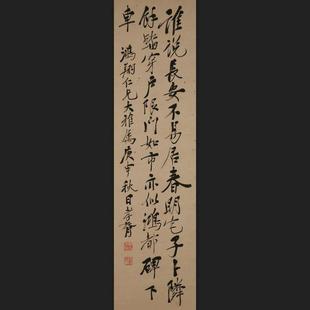 誰說長安不易居春明宅子卜隣
餘踏穿戶限門如市亦似鴻都碑下
車 鴻翔仁兄大雅屬庚申秋日孝胥